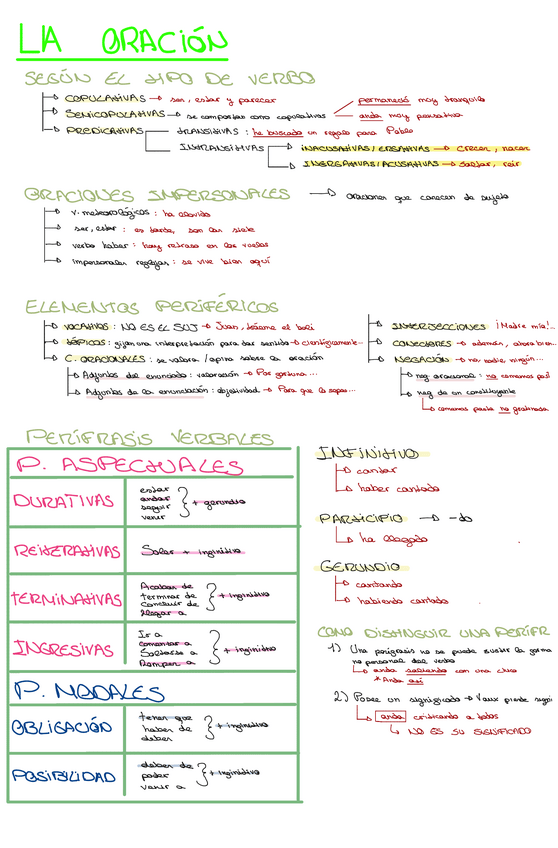 LA ORACIÓN
SEGÚN EL TIPO DE VERBO
COPULATIVAS → ser, estar y parecer
SEMICOPULATIVAS → se comportan como copulativas
permaneció muy tranquilo
anda muy pensativo
PREDICATIVAS
TRANSITIVAS : ha buscado un regalo para Pablo
INTRANSITIVAS
INACUSATIVAS / ERGATIVAS → crecer, nacer
INERGATIVAS / ACUSATIVAS → saltar, reir
ORACIONES IMPERSONALES → oraciones que carecen de sujeto
v. meteorológicos : ha llovido
ser, estar : es tarde, son las siete
verbo haber : hay retraso en los vuelos
impersonales reflejas : se vive bien aquí
ELEMENTOS PERIFÉRICOS
VOCATIVOS : NO ES EL SUJ → Juan, déjame el boli
TÓPICOS : fijan una interpretación para dar sentido → científicamente...
C. ORACIONALES : se valora / opina sobre la oración
Adjuntos del enunciado : valoración → Por fortuna...
Adjuntos de la enunciación : objetividad → Para que lo sepas...
INTERJECCIONES ¡Madre mía!..
CONECTORES → además, ahora bien..
NEGACIÓN → no, nadie, ningún...
neg oracional : no comemos
neg de un constituyente
comemos pasta no gratinada
PERÍFRASIS VERBALES
P. ASPECTUALES
DURATIVAS
estar
andar
seguir
venir
+ gerundio
REITERATIVAS
Soler + infinitivo
TERMINATIVAS
Acabar de
terminar de
Concluir de
llegar a
+ infinitivo
INGRESIVAS
Ir a
comenzar a
Soltarse a
Romper a
+ infinitivo
P. MODALES
OBLIGACIÓN
tener que
haber de
deber
+ infinitivo
POSIBILIDAD
deber de
poder
venir a
+ infinitivo
INFINITIVO
cantar
haber cantado
PARTICIPIO → -do
ha llegado
GERUNDIO
cantando
habiendo cantado
COMO DISTINGUIR UNA PERÍFR
1) Una perífrasis no se puede sustituir la forma
no personal del verbo
anda saliendo con una chica
* Anda así
2) Posee un significado → V.aux pierde signi
anda criticando a todos
NO ES SU SIGNIFICADO